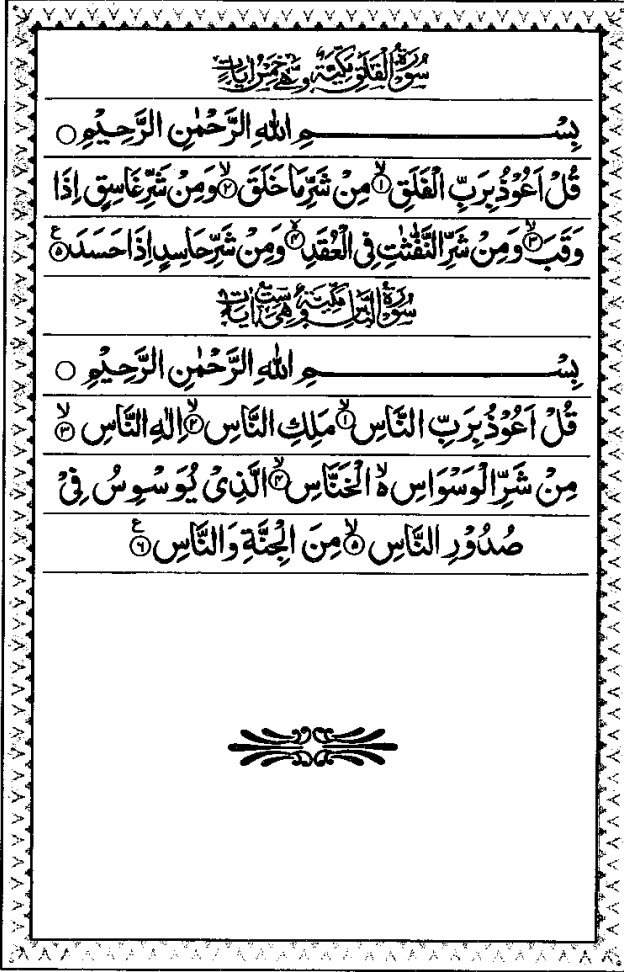 سُوْرَةُ الْفَلَقِ مَكِّيَّةٌ وَّهِيَ خَمْسُ اٰيَاتٍ
بِسْمِ اللّٰهِ الرَّحْمٰنِ الرَّحِيْمِ ○
قُلْ اَعُوْذُ بِرَبِّ الْفَلَقِ ۙ‏﴿۱﴾ مِنْ شَرِّ مَا خَلَقَ ۙ‏﴿۲﴾ وَمِنْ شَرِّ غَاسِقٍ اِذَا
وَقَبَ ۙ‏﴿۳﴾ وَمِنْ شَرِّ النَّفّٰثٰتِ فِى الْعُقَدِ ۙ‏﴿۴﴾ وَمِنْ شَرِّ حَاسِدٍ اِذَا حَسَدَ ﴿۵﴾ ع
سُوْرَةُ النَّاسِ مَكِّيَّةٌ وَّهِيَ سِتُّ اٰيَاتٍ
بِسْمِ اللّٰهِ الرَّحْمٰنِ الرَّحِيْمِ ○
قُلْ اَعُوْذُ بِرَبِّ النَّاسِ ۙ‏﴿۱﴾ مَلِكِ النَّاسِ ۙ‏﴿۲﴾ اِلٰهِ النَّاسِ ۙ‏﴿۳﴾
مِنْ شَرِّ الْوَسْوَاسِ ۙ الْخَنَّاسِ ۙ‏﴿۴﴾ الَّذِىْ يُوَسْوِسُ فِىْ
صُدُوْرِ النَّاسِ ۙ‏﴿۵﴾ مِنَ الْجِنَّةِ وَالنَّاسِ ﴿۶﴾ ع